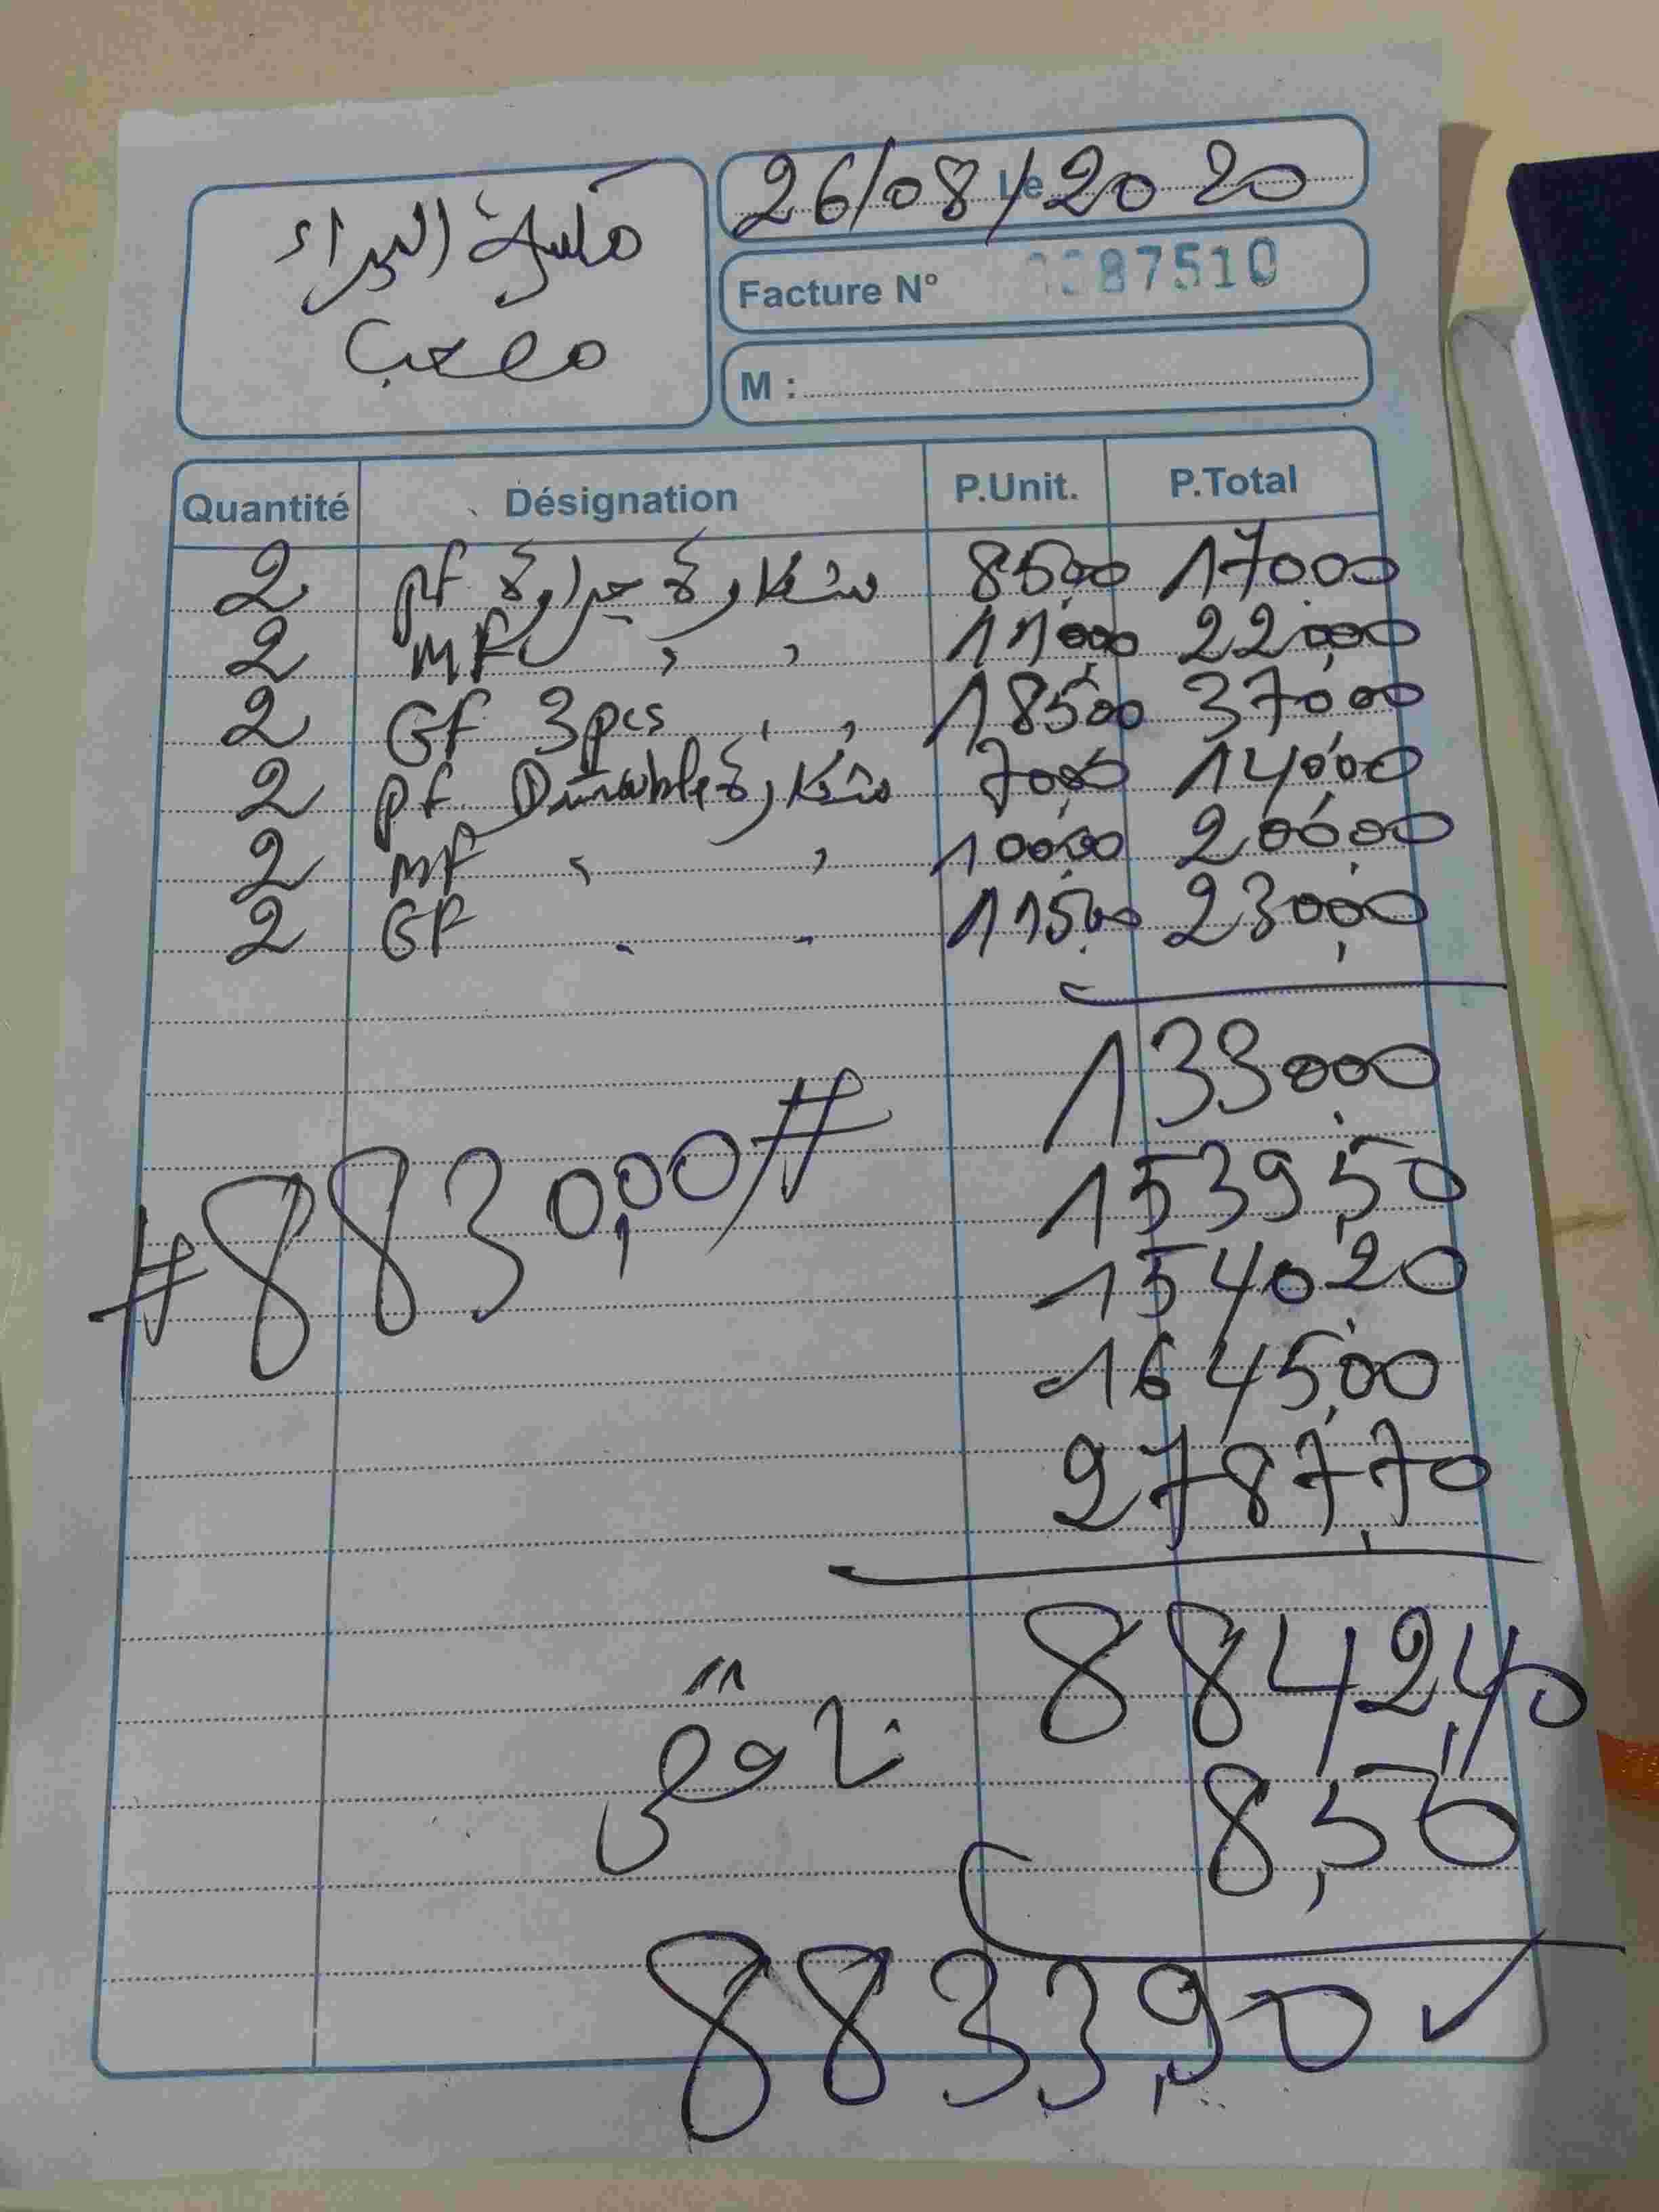 مكتبة البراء
مصعب
26/08/2020
Le
Facture N° 0087510
M :
Quantité Désignation P.Unit. P.Total
2 pf شكارة جرارة 85,00 170,00
2 MF , , 110,00 220,00
2 GF 3pcs , , 185,00 370,00
2 pf Durable شكارة 70,00 140,00
2 MF , , 100,00 200,00
2 GF - - 115,00 230,00
1330,00
# 8830,00 #
1539,50
1540,20
1645,00
2787,70
8842,40
ناقص 8,50
8833,90 ✓